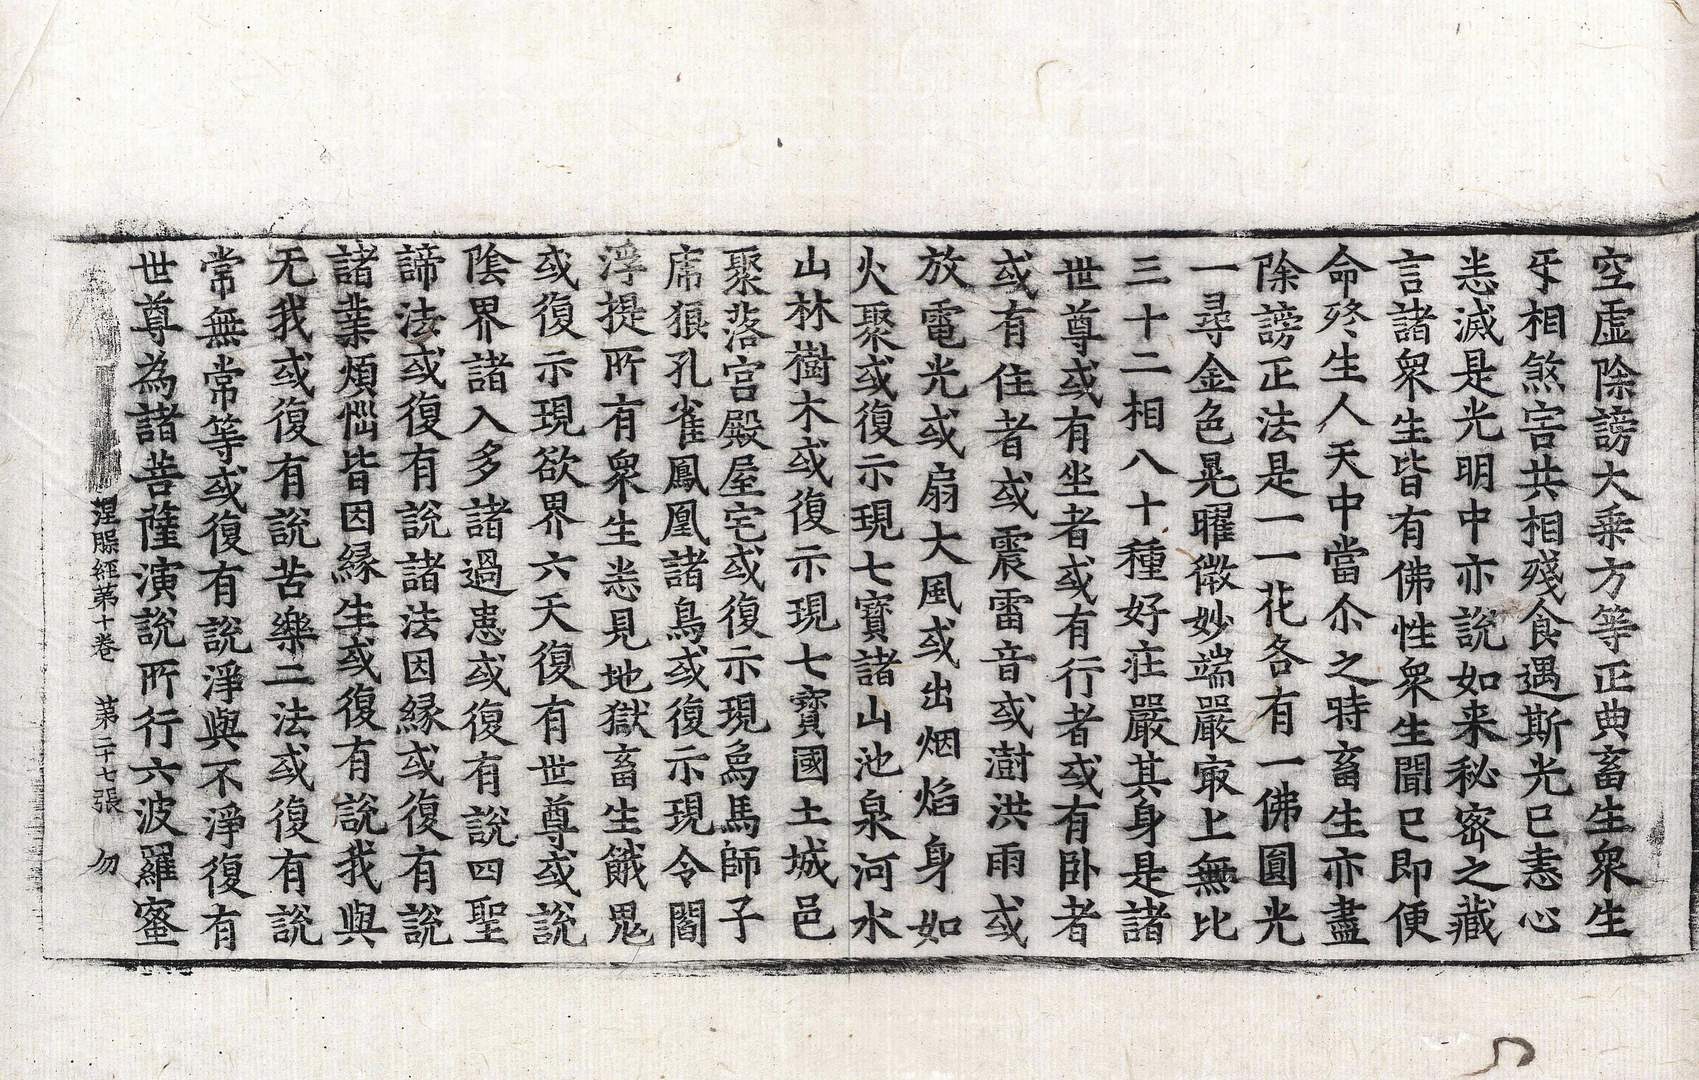 空虛除謗大乘方等正典畜生衆生
牙相煞害共相殘食遇斯光已恚心
悉滅是光明中亦說如来秘密之藏
言諸衆生皆有佛性衆生聞已即便
命終生人天中當尒之時畜生亦盡
除謗正法是一一花各有一佛圓光
一尋金色晃曜微妙端嚴㝡上無比
三十二相八十種好莊嚴其身是諸
世尊或有坐者或有行者或有卧者
或有住者或震雷音或澍洪雨或
放電光或扇大風或出烟焰身如
火聚或復示現七寶諸山池泉河水
山林樹木或復示現七寶國土城邑
聚落宮殿屋宅或復示現烏馬師子
虎狼孔雀鳳凰諸鳥或復示現令閻
浮提所有衆生悉見地獄畜生餓鬼
或復示現欲界六天復有世尊或說
陰界諸入多諸過患或復有說四聖
諦法或復有說諸法因緣或復有說
諸業煩惱皆因緣生或復有說我與
无我或復有說苦樂二法或復有說
常無常等或復有說淨與不淨復有
世尊為諸菩薩演說所行六波羅蜜
涅槃經第十卷 第二十七張 勿